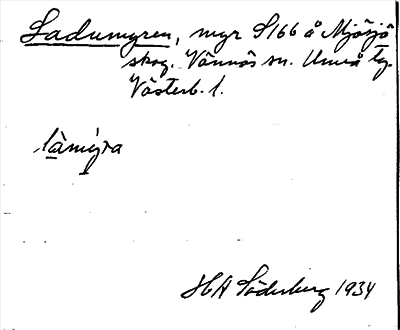 Ladumyren, myr S166 å Mjösjö
skog. Vännäs sn. Umeå tg.
Västerb. l.
làmýra
HA Söderberg 1934